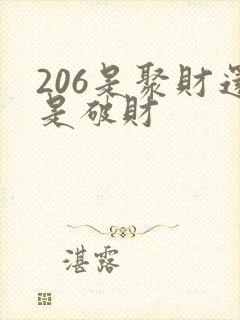 206是聚財還
是破財
湛露